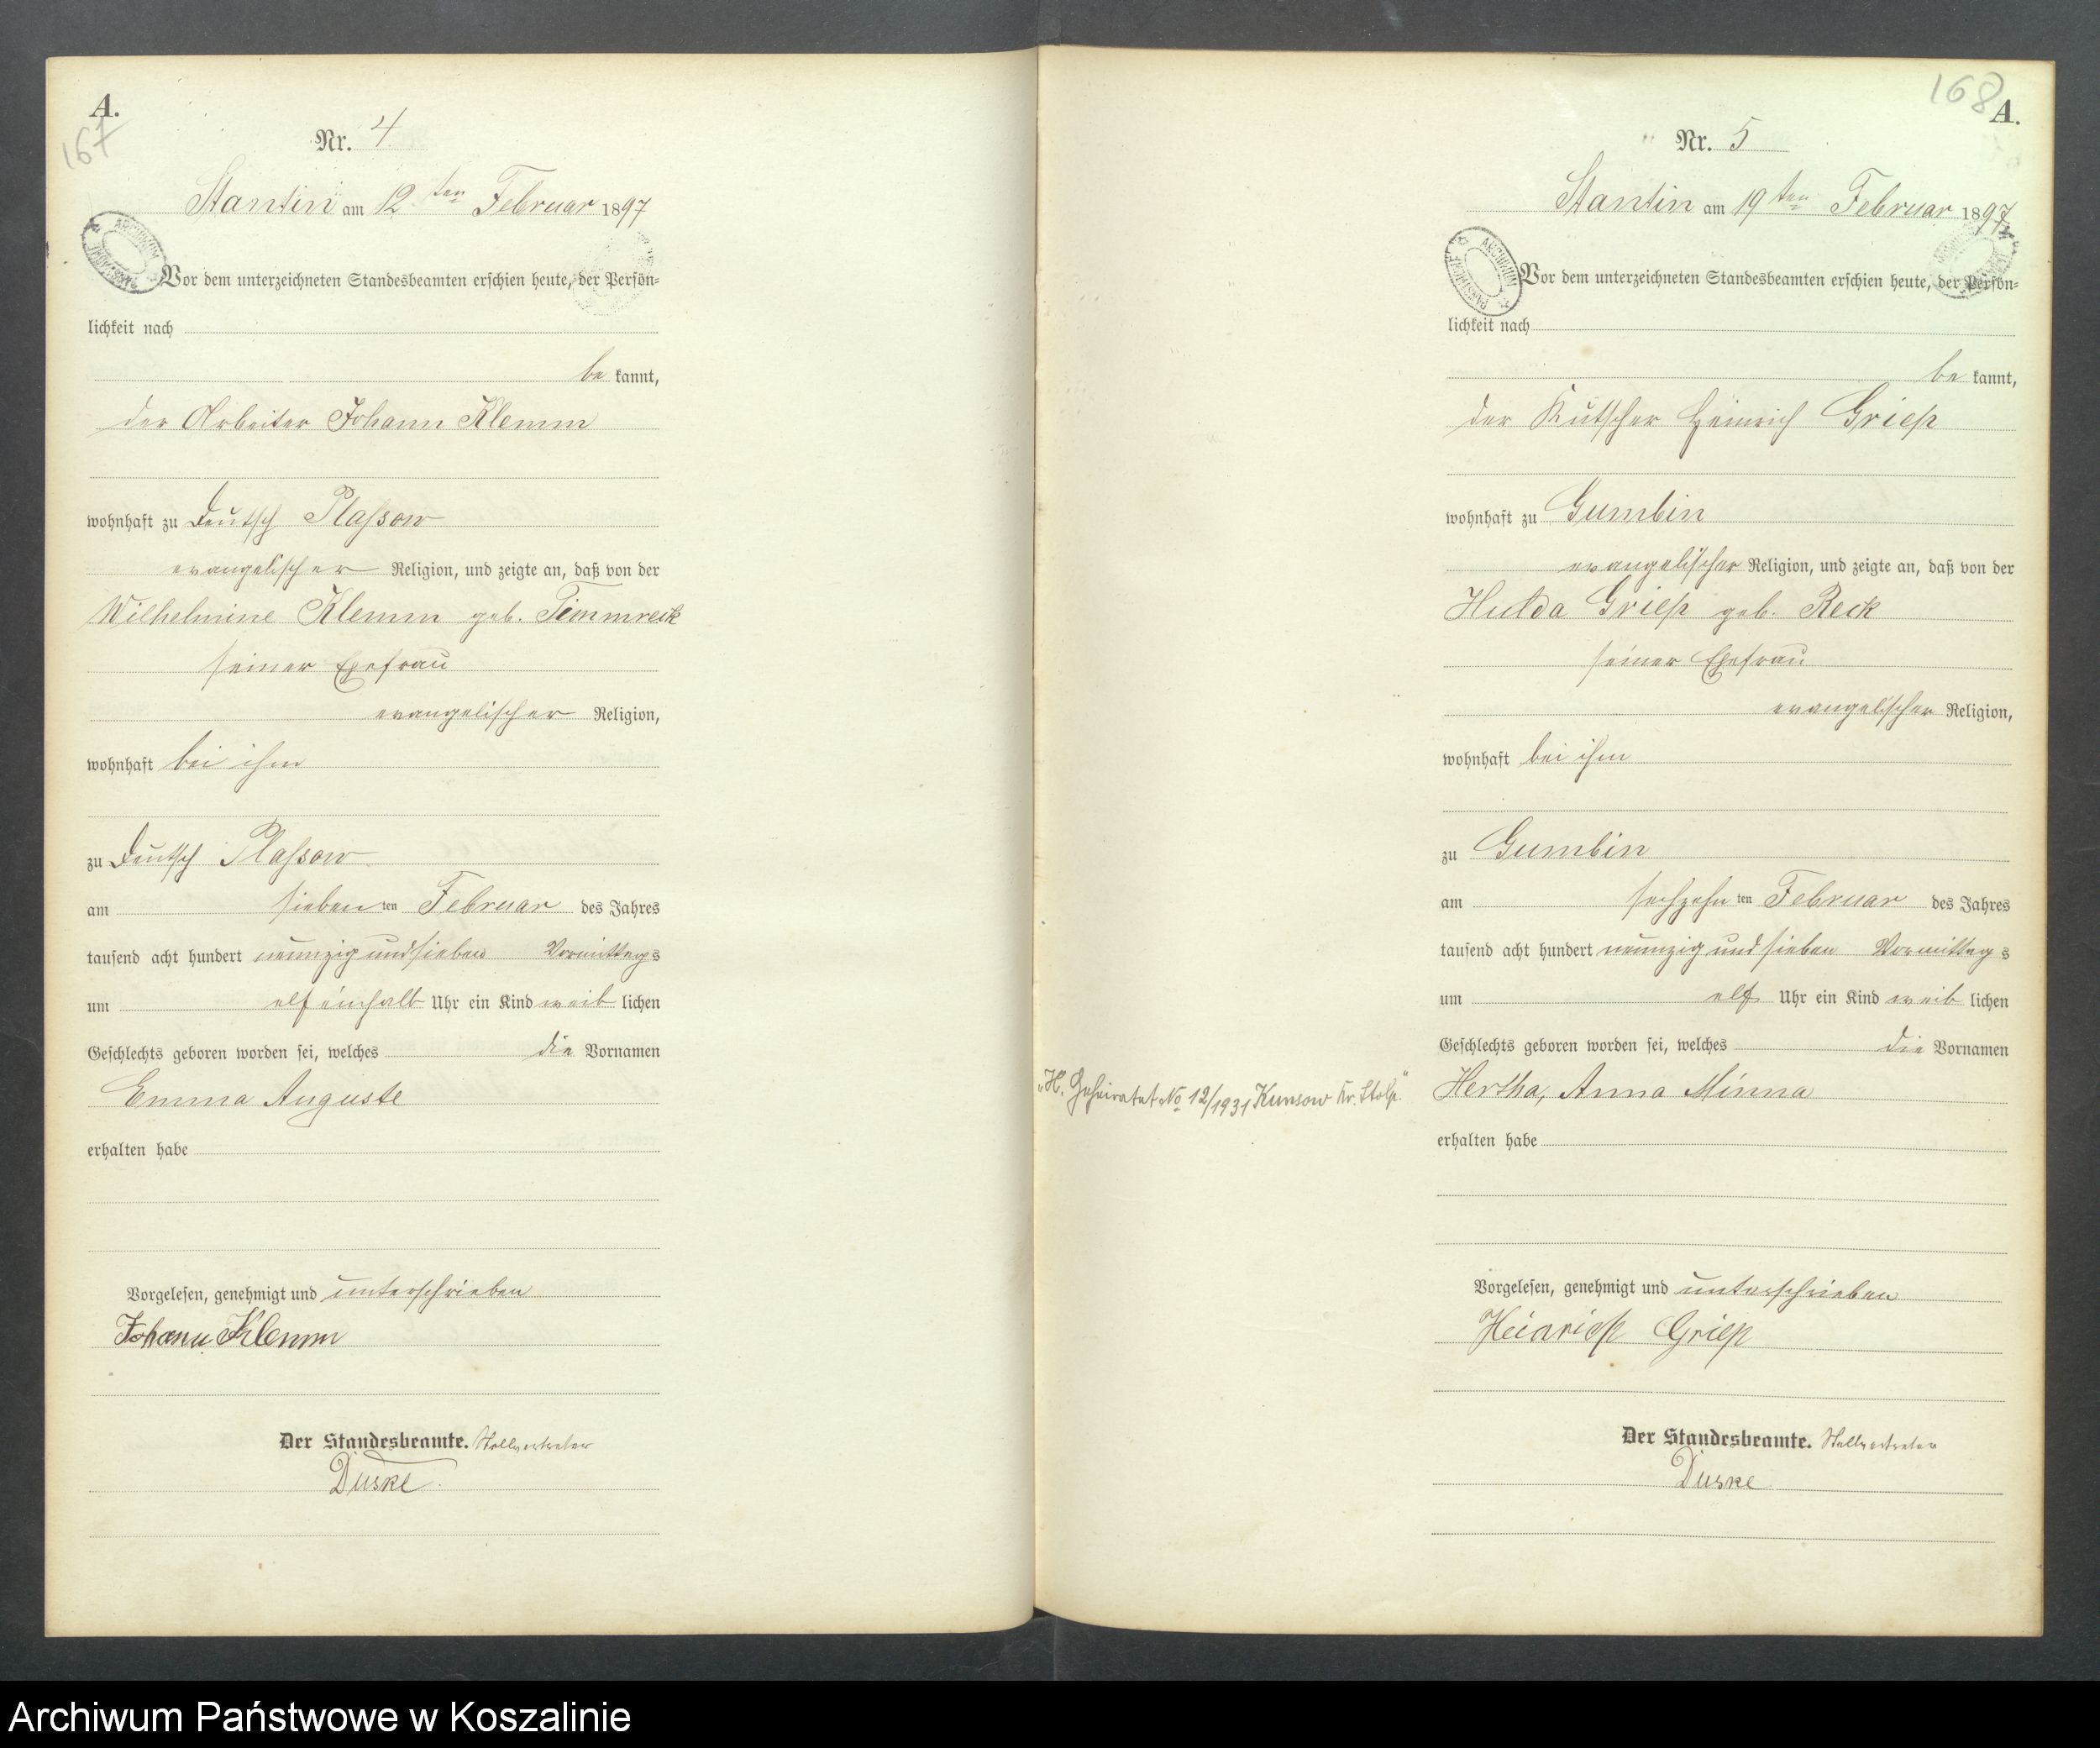 A.
167
Nr. 4
Stantin am 12ten Februar 1897
Vor dem unterzeichneten Standesbeamten erschien heute, der Persön-
lichkeit nach
be kannt,
der Arbeiter Johann Klemm
wohnhaft zu Deutsch Plassow
evangelischer Religion, und zeigte an, daß von der
Wilhelmine Klemm geb. Timmreck
seiner Ehefrau
evangelischer Religion,
wohnhaft bei ihm
zu Deutsch Plassow
am sieben ten Februar des Jahres
tausend acht hundert neunzig und sieben Vormittags
um elf einhalb Uhr ein Kind weib lichen
Geschlechts geboren worden sei, welches die Vornamen
Emma Auguste
erhalten habe
Vorgelesen, genehmigt und unterschrieben
Johann Klemm
Der Standesbeamte. Stellvertreter
Duske
168
A.
Nr. 5
Stantin am 19ten Februar 1897
Vor dem unterzeichneten Standesbeamten erschien heute, der Persön-
lichkeit nach
be kannt,
der Kutscher Heinrich Griep
wohnhaft zu Gumbin
evangelischer Religion, und zeigte an, daß von der
Hulda Griep geb. Reck
seiner Ehefrau
evangelischer Religion,
wohnhaft bei ihm
zu Gumbin
am sechzehn ten Februar des Jahres
tausend acht hundert neunzig und sieben Vormittag s
um elf Uhr ein Kind weib lichen
Geschlechts geboren worden sei, welches die Vornamen
"H. Geheiratet No 12/1931 Kunsow Kr. Stolp."
Hertha, Anna Minna
erhalten habe
Vorgelesen, genehmigt und unterschrieben
Heinrich Griep
Der Standesbeamte. Stellvertreter
Duske
Archiwum Państwowe w Koszalinie